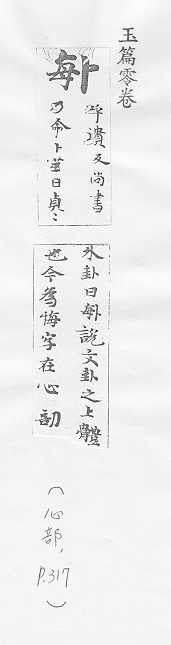 玉篇零卷
𠧩
呼潰反尚書
乃命卜筮曰貞〻
外卦曰𠧩說文卦之上體
也今爲悔字在心部
(心部, P.317)